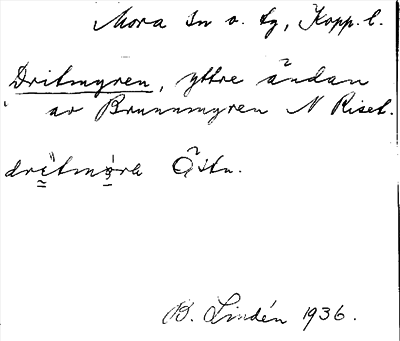 Mora sn o. tg, Kopp. l.
Dritmyren, yttre ändan
av Brunnmyren N Riset.
Östn.
B. Lindén 1936.